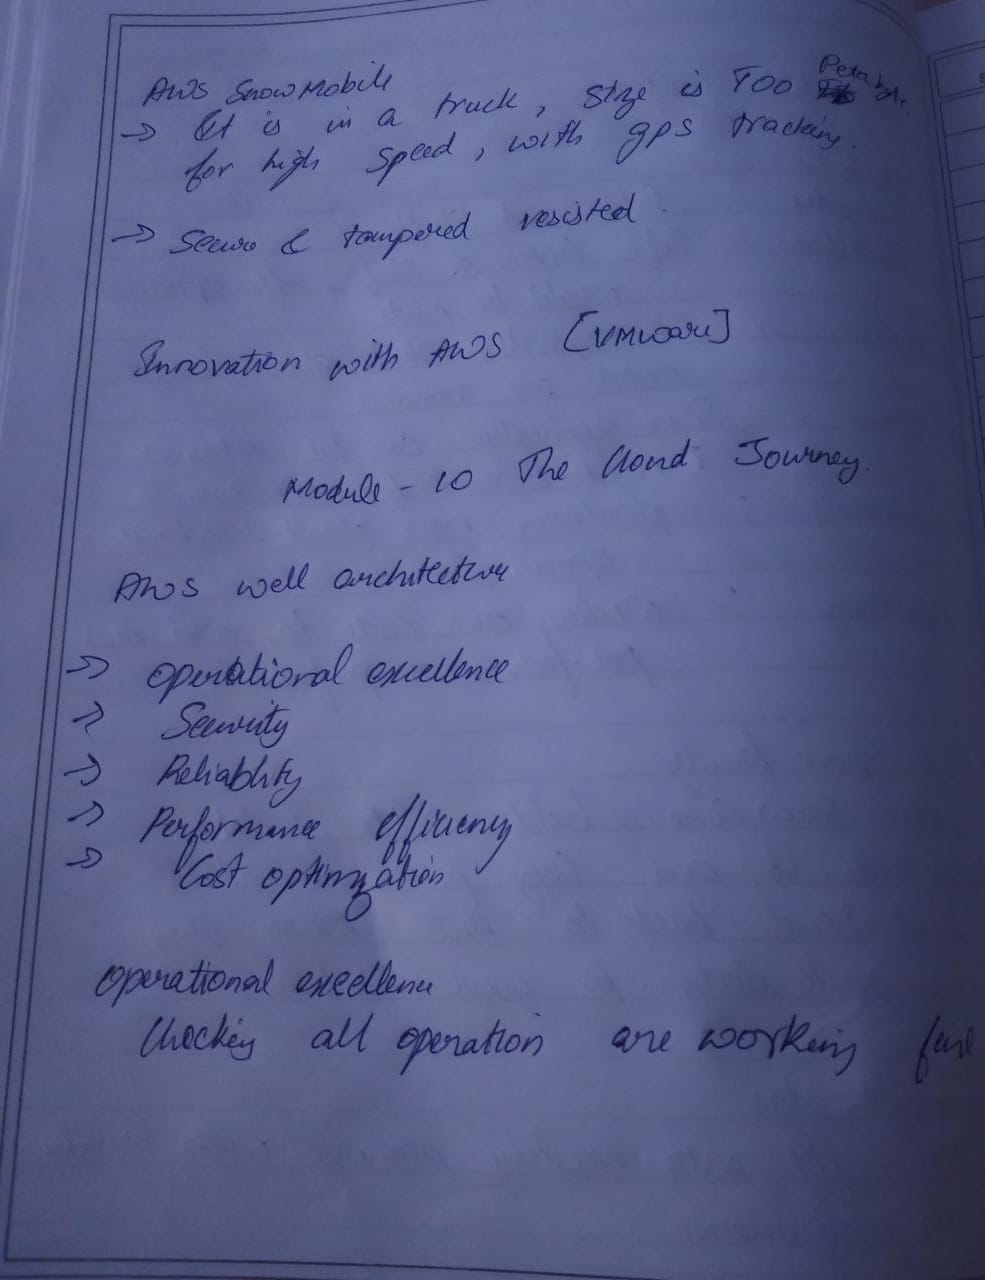 AWS SnowMobile
→ It is in a truck, size is 100 Petabyte
for high speed, with gps tracking.
→ Secure & tampered resisted
Innovation with AWS [VMware]
Module - 10 The Cloud Journey.
AWS well architecture
→ Operational excellence
→ Security
→ Reliablity
→ Performance efficiency
→ Cost optimzation
Operational excellence
Checking all operation are working fine